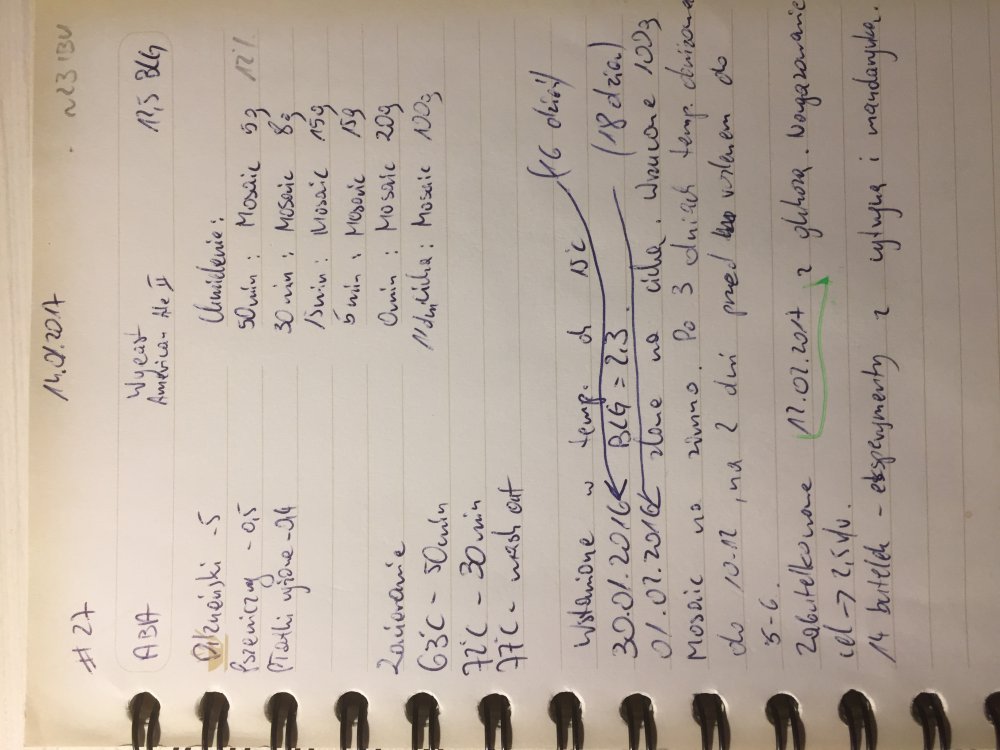 #27 14.01.2017 ~23 IBU
ABA Wyeast 12,5 BLG
American Ale II
Pilzneński - 5 Chmielenie:
Pszeniczny - 0,5 50 min: Mosaic 5g 12%
Płatki ryżowe - 0,4 30 min: Mosaic 8g
15 min: Mosaic 15g
5 min: Mosaic 15g
Zacieranie 0 min: Mosaic 20g
63°C - 50 min Mosaic 100g
72°C - 30 min
77°C - mash out
Wstawione w temp. ch 15°C (16 dzień)
30.01.2016 BLG = 2,3. (18 dzień)
01.02.2016 zlane na cichą. Wrzucone 100g
Mosaic na zimno. Po 3 dniach temp. obniżona
do 10-12, na 2 dni przed rozlewem do
5-6.
Zabutelkowane 12.02.2017 z glukozą. Nagazowanie
cel -> 2,5 v/v.
14 butelek - eksperymenty z cytryną i mandarynką.